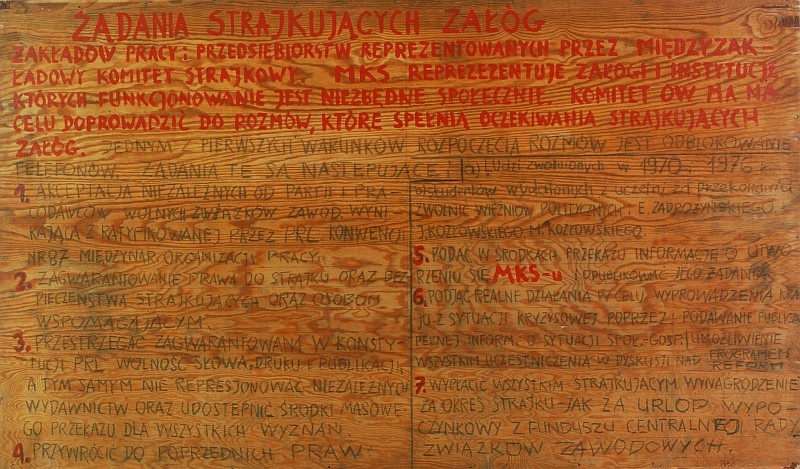 ŻĄDANIA STRAJKUJĄCYCH ZAŁÓG
ZAKŁADÓW PRACY i PRZEDSIĘBIORSTW REPREZENTOWANYCH PRZEZ MIĘDZYZAK-
ŁADOWY KOMITET STRAJKOWY. MKS REPREZEZENTUJE ZAŁOGI I INSTYTUCJE
KTÓRYCH FUNKCJONOWANIE JEST NIEZBĘDNE SPOŁECZNIE. KOMITET ÓW MA NA
CELU DOPROWADZIĆ DO ROZMÓW, KTÓRE SPEŁNIĄ OCZEKIWANIA STRAJKUJĄCYCH
ZAŁÓG. JEDNYM Z PIERWSZYCH WARUNKÓW ROZPOCZĘCIA ROZMÓW JEST ODBLOKOWANIE
TELEFONÓW. ŻĄDANIA TE SĄ NASTĘPUJĄCE:
1. AKCEPTACJA NIEZALEŻNYCH OD PARTII I PRA-
CODAWCÓW WOLNYCH ZWIĄZKÓW ZAWOD. WYNI-
KAJĄCA Z RATYFIKOWANEJ PRZEZ PRL KONWENCJI
NR 87 MIĘDZYNAR. ORGANIZACJI PRACY.
2. ZAGWARANTOWANIE PRAWA DO STRAJKU ORAZ BEZ-
PIECZEŃSTWA STRAJKUJĄCYM ORAZ OSOBOM
WSPOMAGAJĄCYM.
3. PRZESTRZEGAĆ ZAGWARANTOWANĄ W KONSTY-
TUCJI PRL WOLNOŚĆ SŁOWA, DRUKU I PUBLIKACJI,
A TYM SAMYM NIE REPRESJONOWAĆ NIEZALEŻNYCH
WYDAWNICTW ORAZ UDOSTĘPNIĆ ŚRODKI MASOWE-
GO PRZEKAZU DLA WSZYSTKICH WYZNAŃ.
4. PRZYWRÓCIĆ DO POPRZEDNICH PRAW:
a) Ludzi zwolnionych w 1970 i 1976 r.
b) studentów wydalonych z uczelni za przekonania
ZWOLNIĆ WIĘŹNIÓW POLITYCZNYCH E. ZADROŻYŃSKIEGO.
J. KOZŁOWSKIEGO M. KOZŁOWSKIEGO.
5. PODAĆ W ŚRODKACH PRZEKAZU INFORMACJĘ O UTWO-
RZENIU SIĘ MKS-u I OPUBLIKOWAĆ JEGO ŻĄDANIA
6. PODJĄĆ REALNE DZIAŁANIA W CELU WYPROWADZENIA KRA-
JU Z SYTUACJI KRYZYSOWEJ POPRZEZ: PODAWANIE PUBLICZ.
PEŁNEJ INFORM. O SYTUACJI SPOŁ-GOSP. I UMOŻLIWIENIE
WSZYSTKIM UCZESTNICZENIA W DYSKUSJI NAD PROGRAMEM
REFORM
7. WYPŁACIĆ WSZYSTKIM STRAJKUJĄCYM WYNAGRODZENIE
ZA OKRES STRAJKU JAK ZA URLOP WYPO-
CZYNKOWY Z FUNDUSZU CENTRALNEJ RADY
ZWIĄZKÓW ZAWODOWYCH.